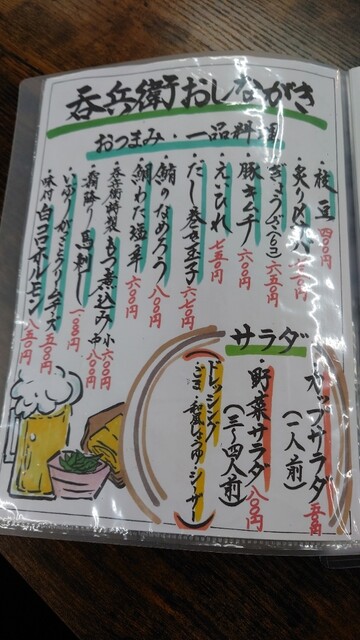 呑兵衛おしながき
おつまみ・一品料理
・枝豆 四〇〇円
・炙り〆サバ
・ぎょうざ(6ヶ) 六五〇円
・豚キムチ 六〇〇円
・えいひれ 七五〇円
・だし巻き玉子 六七〇円
・鮪のなめろう 八〇〇円
・鯛わた塩辛 六〇〇円
・呑兵衛特製もつ煮込み 小六〇〇円 中八〇〇円
・霜降り馬刺し
・いぶりがっことクリームチーズ 五〇〇円
・味付白コロホルモン 八五〇円
サラダ
・カップサラダ
(一人前)
・野菜サラダ 八〇〇円
(三〜四人前)
ドレッシング
・ごま・和風・シーザー